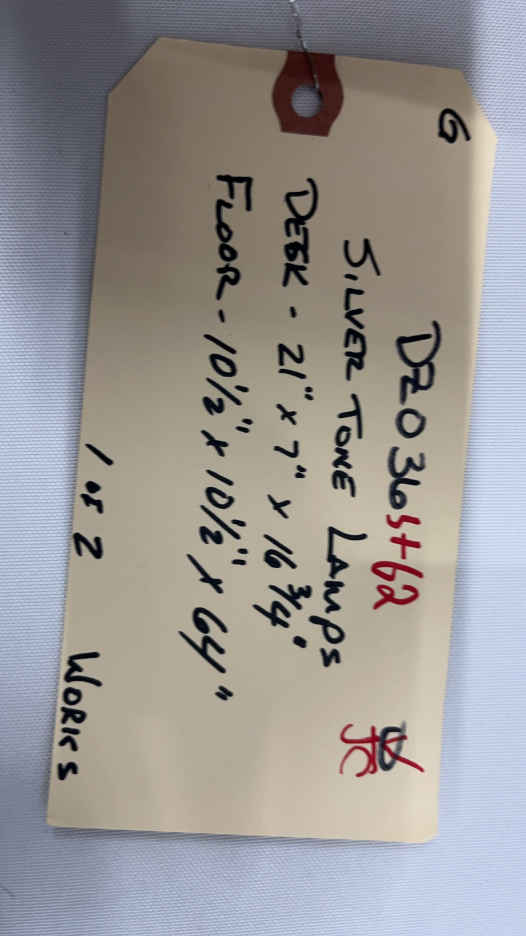 G
DZ0363+62
SILVER TONE LAMPS
DESK - 21" x 7" x 16 3/4"
FLOOR - 10 1/2" x 10 1/2" x 64"
1 OF 2 WORKS